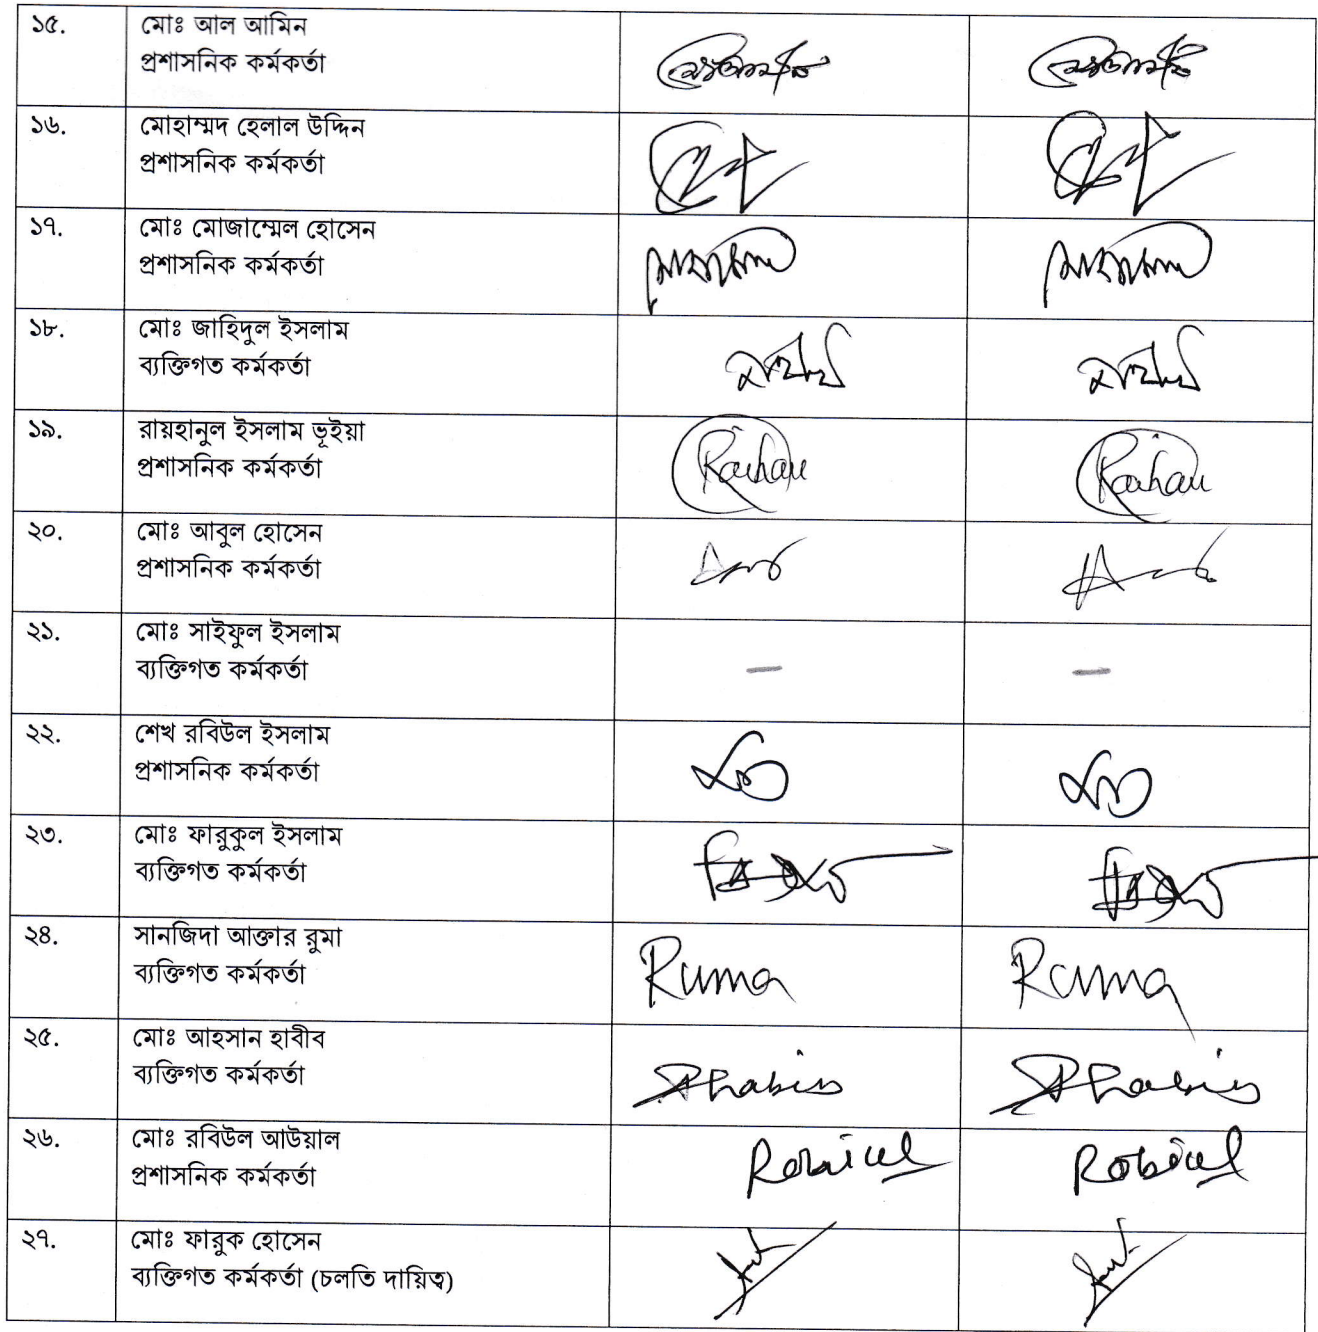 ১৫.
মোঃ আল আমিন
প্রশাসনিক কর্মকর্তা
১৬.
মোহাম্মদ হেলাল উদ্দিন
প্রশাসনিক কর্মকর্তা
১৭.
মোঃ মোজাম্মেল হোসেন
প্রশাসনিক কর্মকর্তা
১৮.
মোঃ জাহিদুল ইসলাম
ব্যক্তিগত কর্মকর্তা
১৯.
রায়হানুল ইসলাম ভূইয়া
প্রশাসনিক কর্মকর্তা
Raihan Raihan
২০.
মোঃ আবুল হোসেন
প্রশাসনিক কর্মকর্তা
২১.
মোঃ সাইফুল ইসলাম
ব্যক্তিগত কর্মকর্তা
২২.
শেখ রবিউল ইসলাম
প্রশাসনিক কর্মকর্তা
২৩.
মোঃ ফারুকুল ইসলাম
ব্যক্তিগত কর্মকর্তা
২৪.
সানজিদা আক্তার রুমা
ব্যক্তিগত কর্মকর্তা
Ruma Ruma
২৫.
মোঃ আহসান হাবীব
ব্যক্তিগত কর্মকর্তা
২৬.
মোঃ রবিউল আউয়াল
প্রশাসনিক কর্মকর্তা
Robiul Robiul
২৭.
মোঃ ফারুক হোসেন
ব্যক্তিগত কর্মকর্তা (চলতি দায়িত্ব)